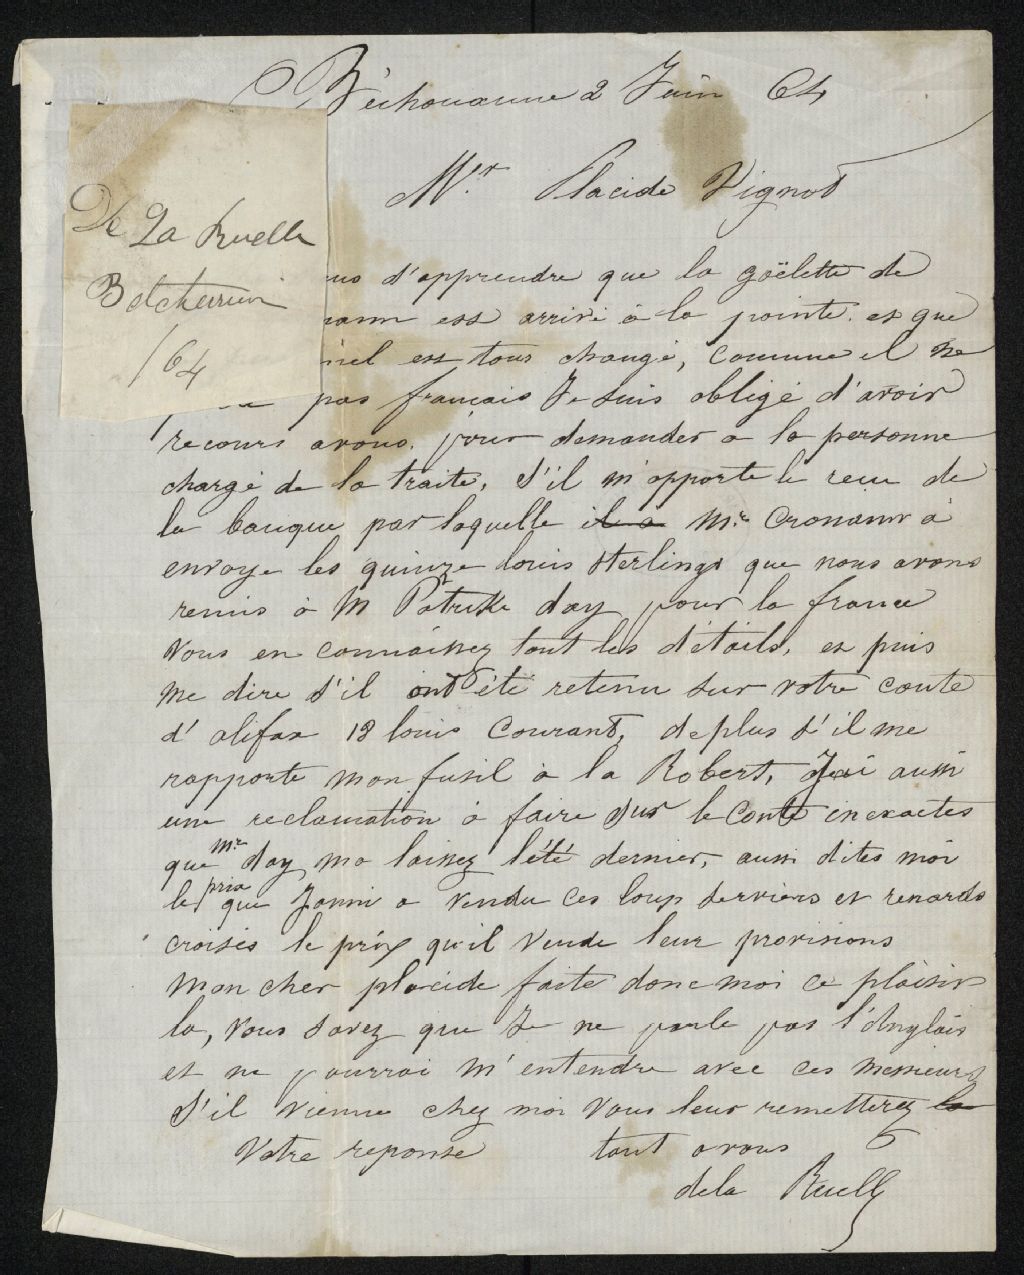 Béchouanne 2 Juin 64
Mr. Placide Vignot
De La Ruelle
Betcherrun
/64
d'apprendre que la goëlette de
est arrivé à la pointe. et que
est tous changé, comme il ne
pas français Je suis obligé d'avoir
recours avous. pour demander a la personne
chargé de la traite, S'il m'apporte le recu de
la banque par laquelle il a Mr. Cronann à
envoye les quinze louis Sterlings que nous avons
remis à M Patrike day pour la france
Vous en connaissez tout les détails, et puis
me dire S'il ont été retenu sur votre conte
d'alifax 18 louis Courant, de plus s'il me
rapporte mon fusil à la Robert, J'ai aussi
une reclamation à faire sur le Conte inexactes
que Mr. day ma laissez l'été dernier, aussi dites moi
le prix que Jonni a vendu ces loup Serviers et renards
croisés le prix qu'il vende leur provisions
Mon cher placide faite donc moi ce plaisir
la, Vous savez que Je ne parle pas l'Anglais
et ne pourrai m'entendre avec ces Messieurs
S'il vienne chez moi Vous leur remetterez la
Votre reponse tout a vous
dela Ruelle